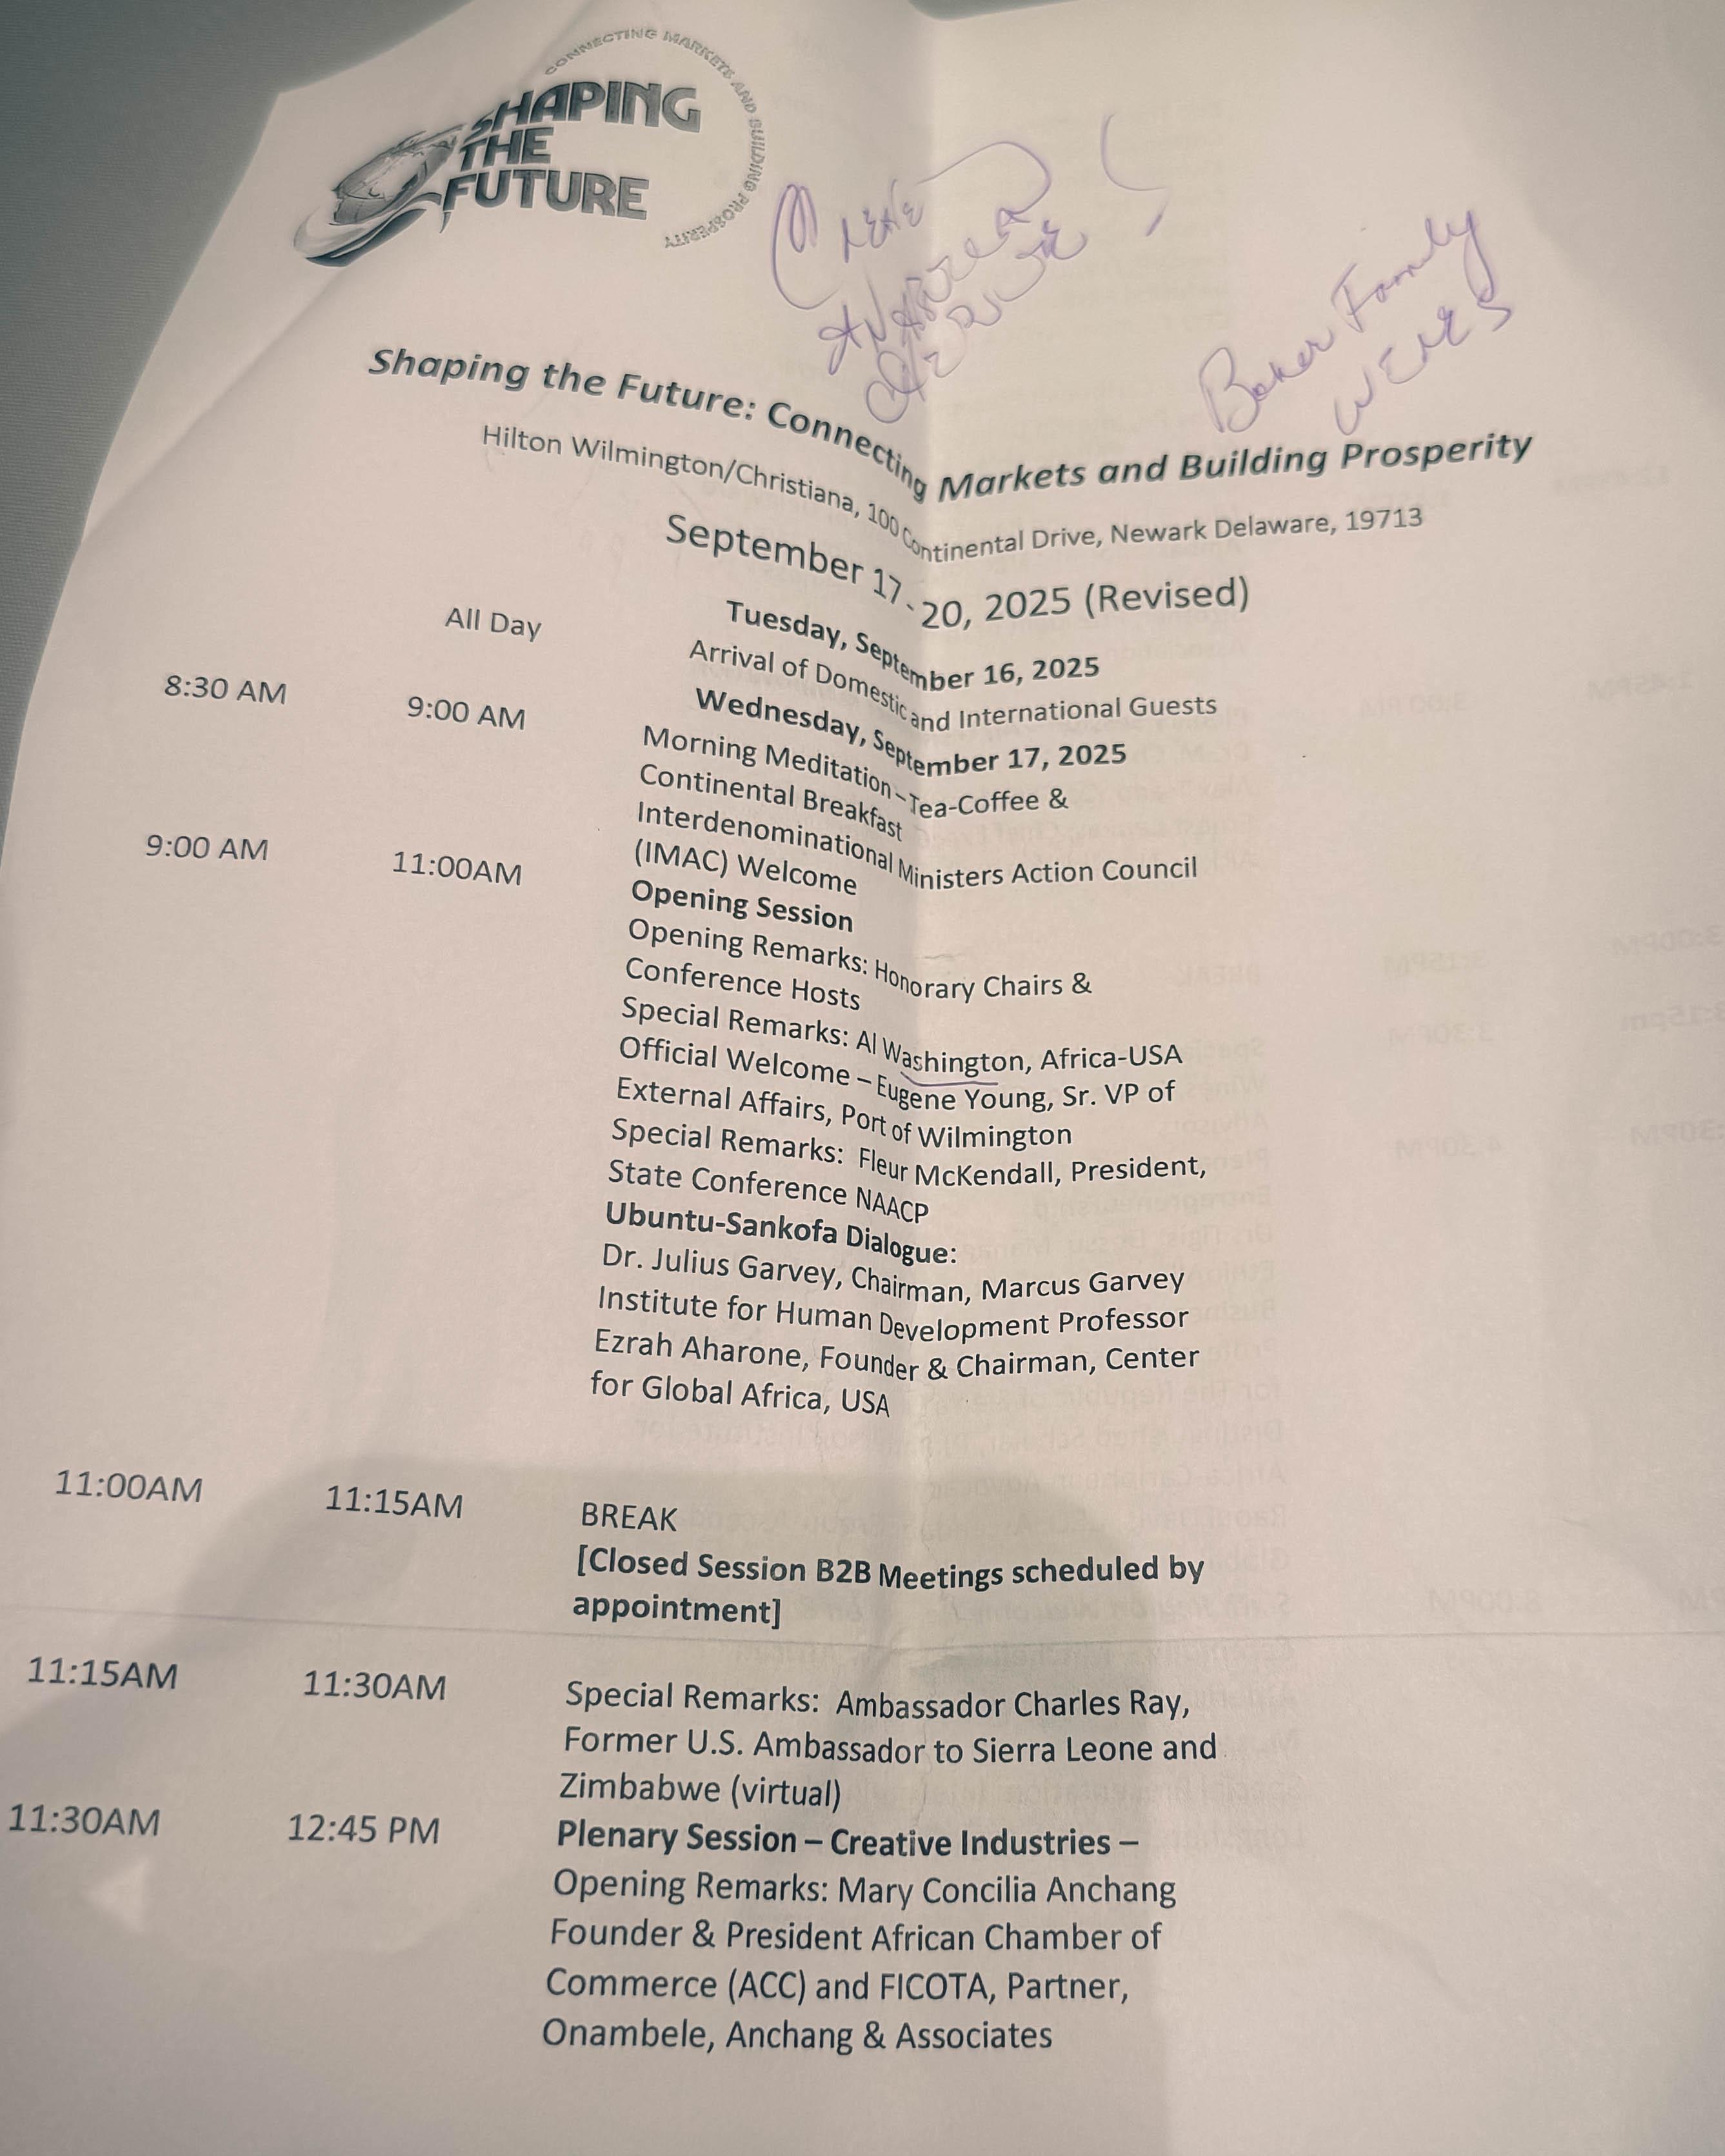 CONNECTING MARKETS AND BUILDING PROSPERITY
SHAPING
THE
FUTURE
Baker Family
Shaping the Future: Connecting Markets and Building Prosperity
Hilton Wilmington/Christiana, 100 Continental Drive, Newark Delaware, 19713
September 17-20, 2025 (Revised)
Tuesday, September 16, 2025
All Day Arrival of Domestic and International Guests
Wednesday, September 17, 2025
8:30 AM 9:00 AM Morning Meditation – Tea-Coffee &
Continental Breakfast
Interdenominational Ministers Action Council
(IMAC) Welcome
9:00 AM 11:00AM Opening Session
Opening Remarks: Honorary Chairs &
Conference Hosts
Special Remarks: Al Washington, Africa-USA
Official Welcome – Eugene Young, Sr. VP of
External Affairs, Port of Wilmington
Special Remarks: Fleur McKendall, President,
State Conference NAACP
Ubuntu-Sankofa Dialogue:
Dr. Julius Garvey, Chairman, Marcus Garvey
Institute for Human Development Professor
Ezrah Aharone, Founder & Chairman, Center
for Global Africa, USA
11:00AM 11:15AM BREAK
[Closed Session B2B Meetings scheduled by
appointment]
11:15AM 11:30AM Special Remarks: Ambassador Charles Ray,
Former U.S. Ambassador to Sierra Leone and
Zimbabwe (virtual)
11:30AM 12:45 PM Plenary Session – Creative Industries –
Opening Remarks: Mary Concilia Anchang
Founder & President African Chamber of
Commerce (ACC) and FICOTA, Partner,
Onambele, Anchang & Associates